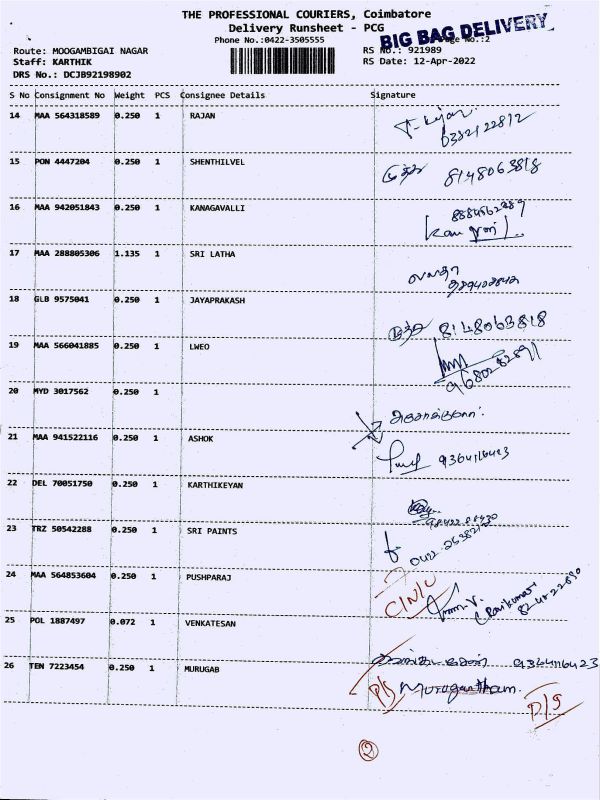 THE PROFESSIONAL COURIERS, Coimbatore
Delivery Runsheet - PCG
BIG BAG DELIVERY
Phone No.:0422-3505555
Page No.:2
Route: MOOGAMBIGAI NAGAR
RS No.: 921989
Staff: KARTHIK
RS Date: 12-Apr-2022
DRS No.: DCJB92198902
S No Consignment No Weight PCS Consignee Details Signature
14 MAA 564318589 0.250 1 RAJAN
15 PON 4447204 0.250 1 SHENTHILVEL 8148063818
16 MAA 942051843 0.250 1 KANAGAVALLI
17 MAA 288805306 1.135 1 SRI LATHA
18 GLB 9575041 0.250 1 JAYAPRAKASH 8148063818
19 MAA 566041885 0.250 1 LWEO
9680282891
20 MYD 3017562 0.250 1
21 MAA 941522116 0.250 1 ASHOK 9364116423
22 DEL 70051750 0.250 1 KARTHIKEYAN
23 TRZ 50542288 0.250 1 SRI PAINTS
24 MAA 564853604 0.250 1 PUSHPARAJ
C/N/U
25 POL 1887497 0.072 1 VENKATESAN
26 TEN 7223454 0.250 1 MURUGAB 9364116423
P/S Murugantham. P/S
2